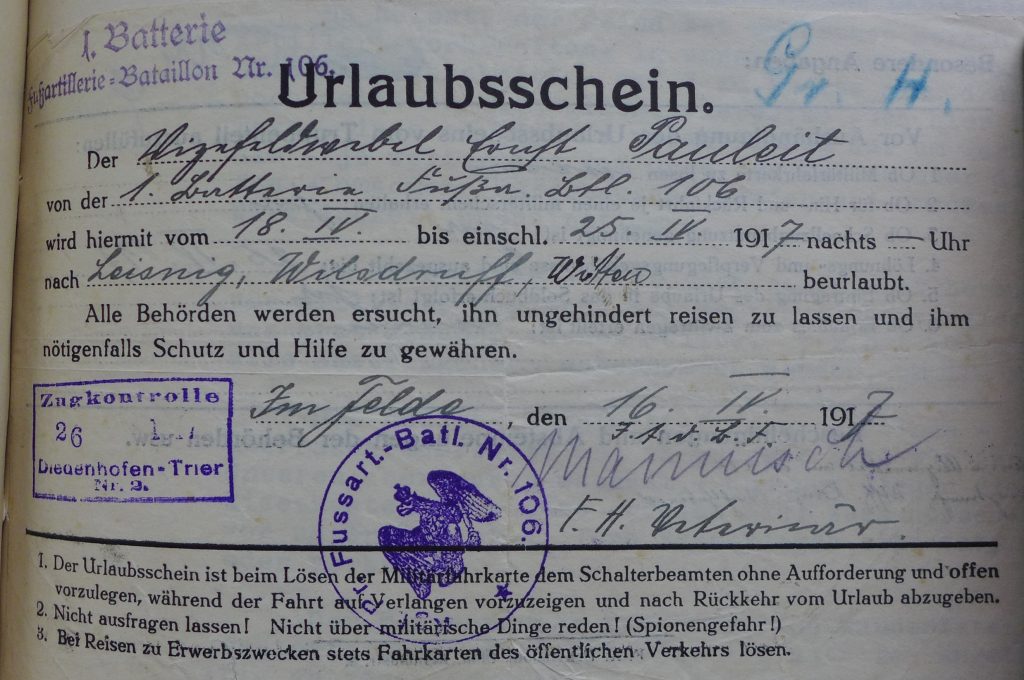 1. Batterie
Fußartillerie-Bataillon Nr. 106.
Urlaubsschein.
Gr. H.
Der Vizefeldwebel Ernst Pauleit
von der 1. Batterie Fußa. Btl. 106
wird hiermit vom 18. IV. bis einschl. 25. IV. 1917 nachts — Uhr
nach Leisnig, Wilsdruff, Witten beurlaubt.
Alle Behörden werden ersucht, ihn ungehindert reisen zu lassen und ihm
nötigenfalls Schutz und Hilfe zu gewähren.
Im Felde, den 16. IV. 1917
Zugkontrolle
26
Diedenhofen-Trier
Nr. 2.
Fussart.-Batl. Nr. 106.
F. H. Veterinär.
1. Der Urlaubsschein ist beim Lösen der Militärfahrkarte dem Schalterbeamten ohne Aufforderung und offen
vorzulegen, während der Fahrt auf Verlangen vorzuzeigen und nach Rückkehr vom Urlaub abzugeben.
2. Nicht ausfragen lassen! Nicht über militärische Dinge reden! (Spionengefahr!)
3. Bei Reisen zu Erwerbszwecken stets Fahrkarten des öffentlichen Verkehrs lösen.